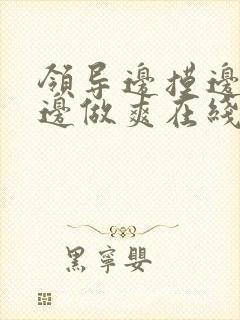 領导邊摸邊
邊做爽在綫
黑寧嬰